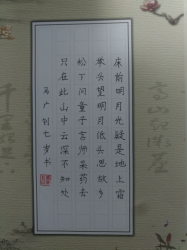 床前明月光疑是地上霜
举头望明月低头思故乡
松下问童子言师采药去
只在此山中云深不知处